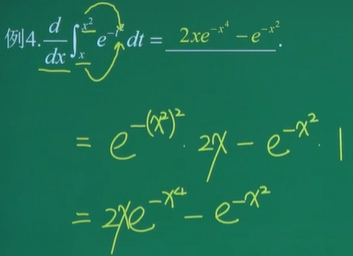 例4. \frac{d}{dx} \int_{x}^{x^2} e^{-t^2} dt = 2xe^{-x^4} - e^{-x^2}.
= e^{-(x^2)^2} \cdot 2x - e^{-x^2} \cdot 1
= 2xe^{-x^4} - e^{-x^2}